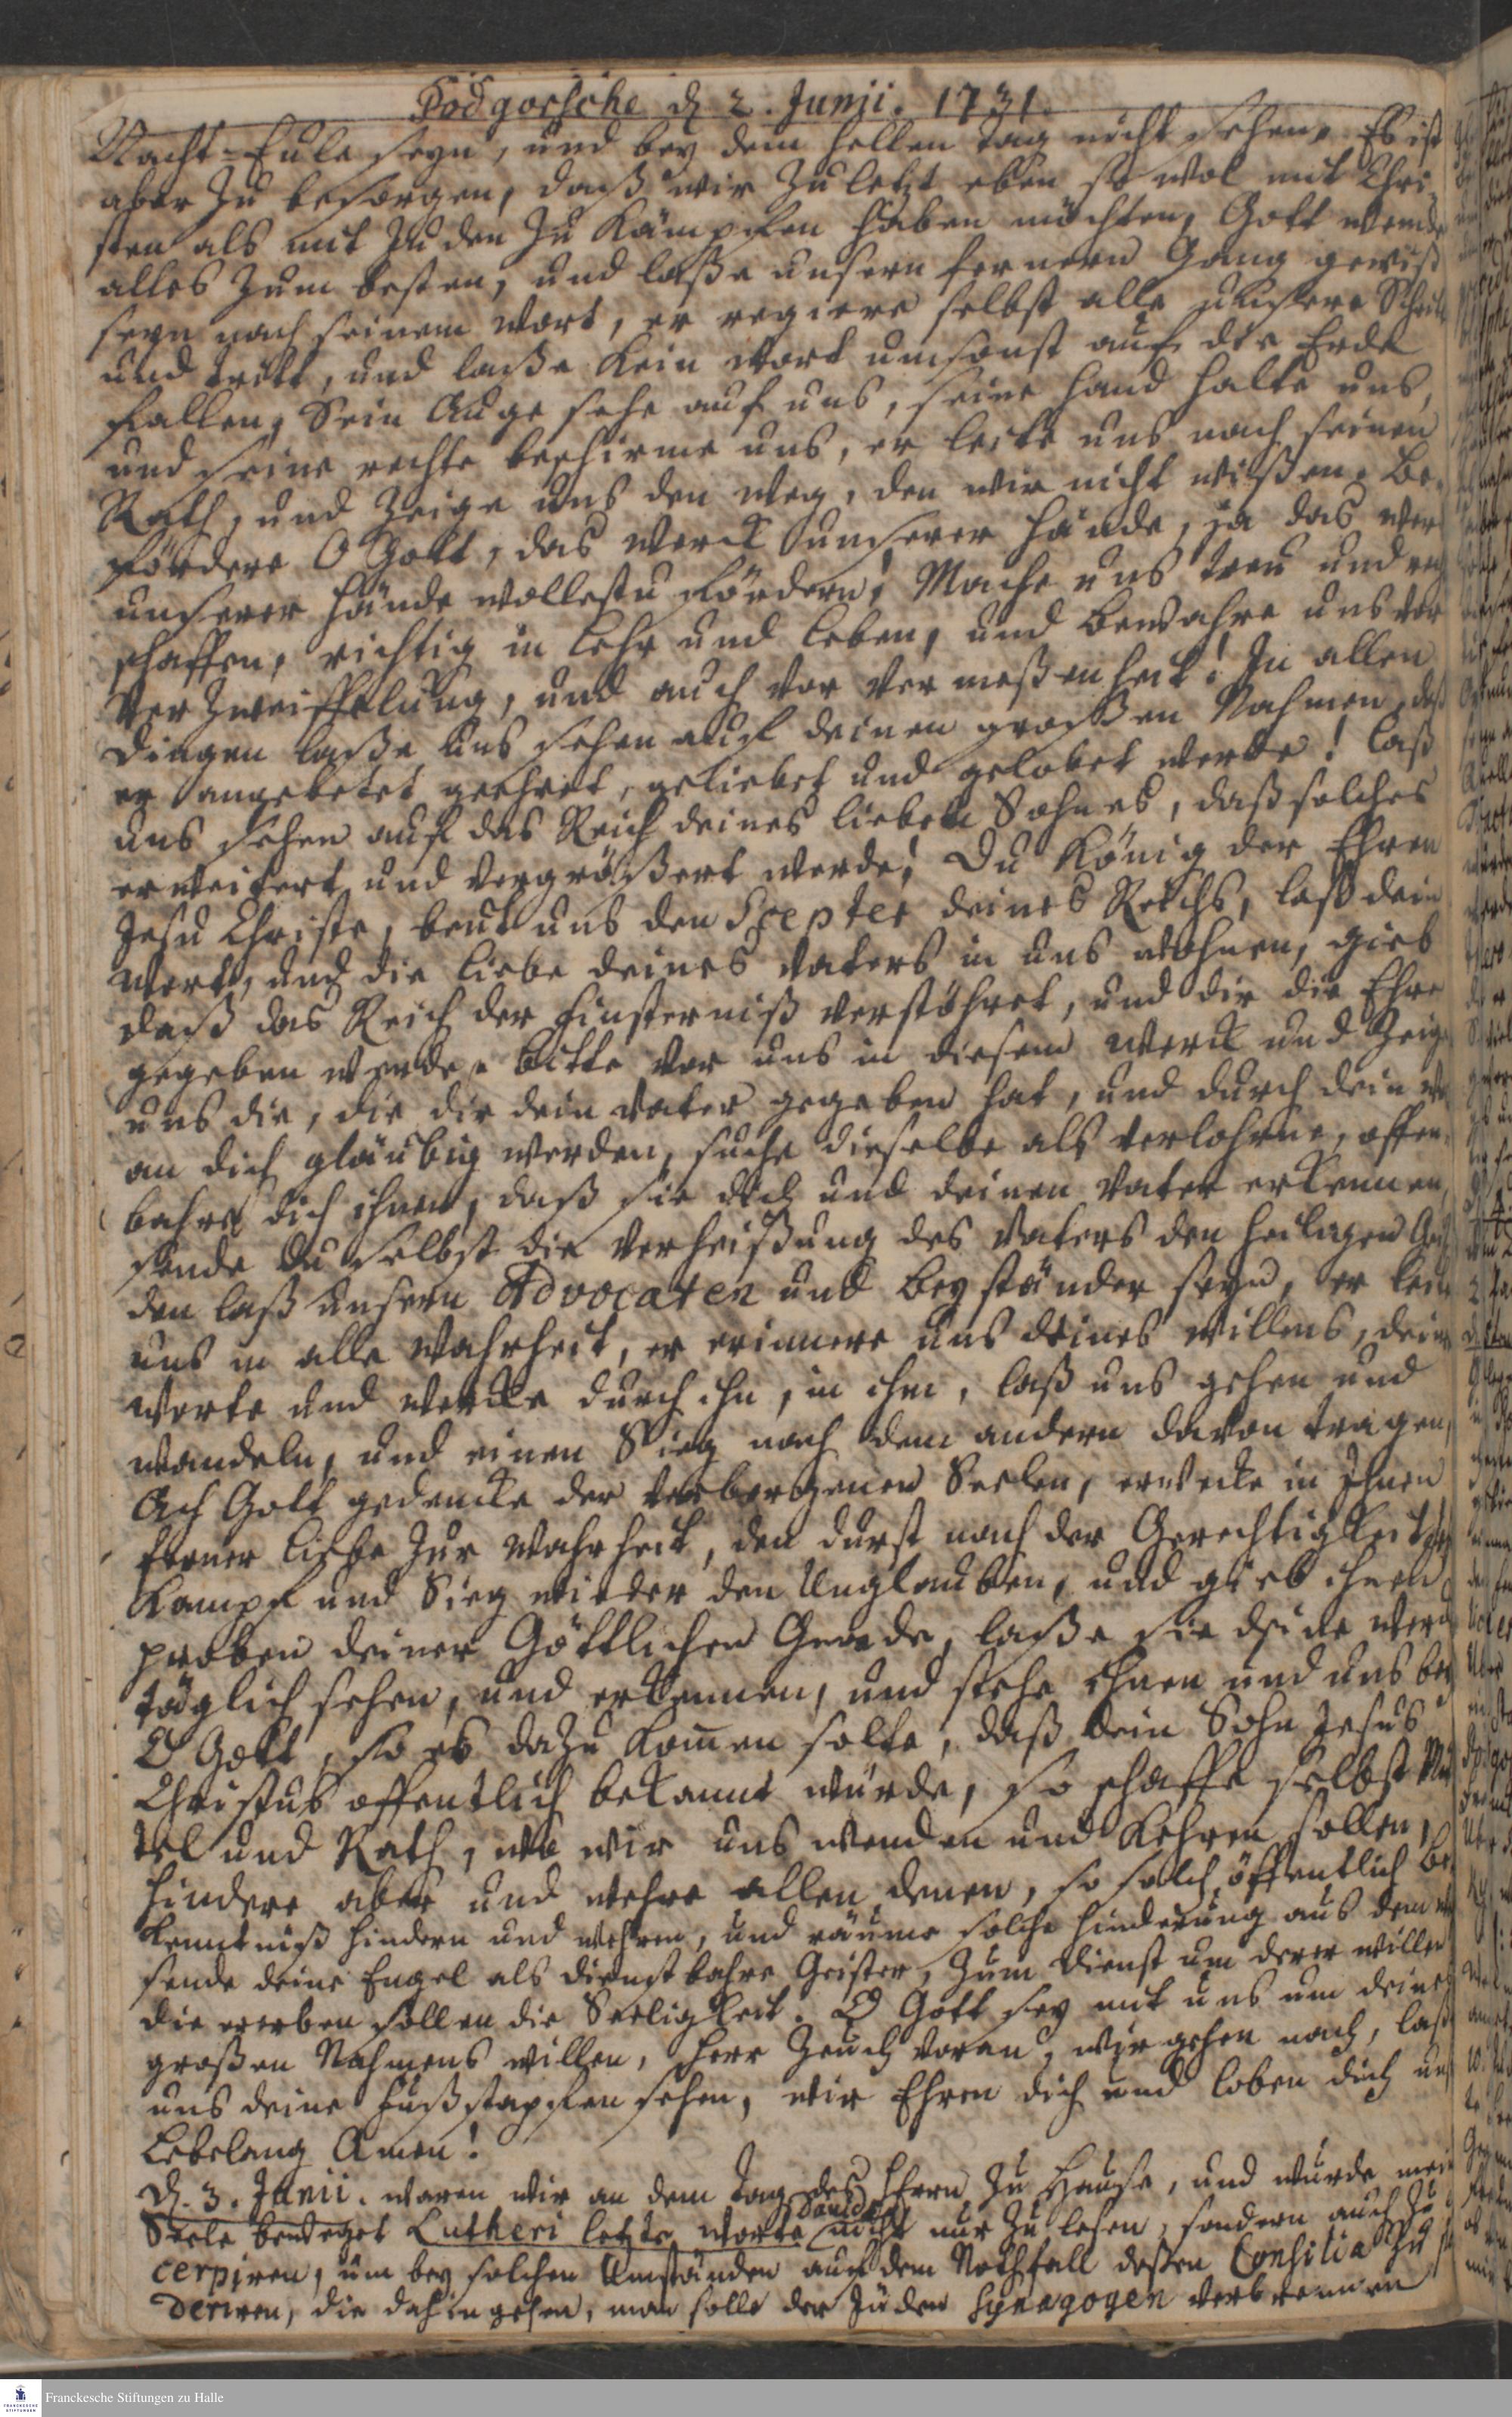 Podgorsche d. 2. Junii. 1731.
Nacht-Eule seyn, und bey dem hellen Tag nicht sehen. Es ist
aber zu besorgen, daß wir zuletzt eben so wol mit Chri-
sten als mit Juden zu kämpffen haben möchten, Gott wende
alles zum besten, und laße unsern fernern Gang gewiß
seyn nach seinem Wort, er regiere selbst alle unsere Schritt
und tritt, und laße kein Wort umsonst auf die Erde
fallen, Sein Auge sehe auf uns, seine Hand halte uns,
und seine rechte beschirme uns, er leite uns nach seinem
Rath, und zeige uns den Weg, den wir nicht wißen. Be-
fördere O Gott, das Werck unserer Hände, ja das Werck
unserer Hände wollestu fördern! Mache uns treu und recht
schaffen, richtig in Lehr und Leben, und bewahre uns vor
Verzweiffelung, und auch vor Vermeßenheit! In allen
Dingen laße uns sehen auf deinen großen Nahmen, daß
er angebetet geehret, geliebet und gelobet werde! laß
uns sehen auf das Reich deines lieben Sohnes, daß solches
erweitert und vergrößert werde! Du König der Ehren
Jesu Christe, beut uns den Scepter deines Reichs, laß dein
Wort, und die Liebe deines Vaters in uns wohnen, gieb
daß das Reich der Finsterniß verstöhret, und dir die Ehre
gegeben werde. bitte vor uns in diesem Werck und zeige
uns die, die dir dein Vater gegeben hat, und durch dein
an dich gläubig werden, suche dieselbe als verlohrne, offen-
bahre dich ihnen, daß sie dich und deinen Vater erkennen,
sende du selbst die Verheißung des Vaters den heiligen Geist
den laß unsern Advocaten und Beyständer seyn, er leite
uns in alle Wahrheit, er erinnere uns deines Willens, deiner
Worte und Wercke durch ihn, in ihm, laß uns gehen und
wandeln, und einen Sieg nach dem andern davon tragen,
Ach Gott gedencke der verborgenen Seelen, erwecke in Ihnen
ferner Liebe zur Wahrheit, den durst nach der Gerechtigkeit,
Kampf und Sieg wieder den Unglauben, und gieb ihnen
proben deiner Göttlichen Gnade, laße sie deine Werck
täglich sehen, und erkennen, und stehe ihnen und uns bey
O Gott, so es dazu kommen solte, daß dein Sohn Jesus
Christus offentlich bekannt würde, so schaffe selbst Mit
tel und Rath, wo wir uns wenden und kehren sollen,
hindere aber und wehre allen denen, so solch öffentlich Be-
kenntniß hindern und wehren, und räume solche hinderung aus dem
sende deine Engel als dienstbahre Geister, zum Dienst um derer willen
die ererben sollen die Seeligkeit. O Gott sey mit uns um deines
großen Nahmens willen, Herr zeuch voran, wir gehen nach, laß
uns deine Fußstapffen sehen, wir Ehren dich und loben dich un
Lebelang Amen!
D. 3. Junii. waren wir an dem Tag des Herrn zu Hause, und wurde mein
Seele beweget Lutheri letzte Worte Davids nicht nur zu lesen, sondern auch zu
cerpiren, um bey solchen Umständen auf dem Nothfall deßen Consilia zu
deriren, die dahin gehen, man solle der Jüden Synagogen verbrennen
Franckesche Stiftungen zu Halle